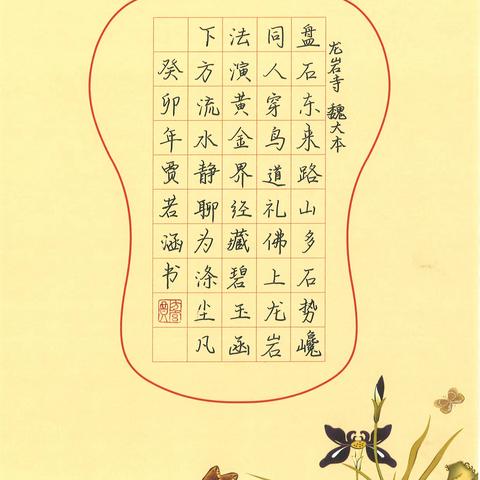 龙岩寺 魏大本
盘石东来路山多石势巉
同人穿鸟道礼佛上龙岩
法演黄金界经藏碧玉函
下方流水静聊为涤尘凡
癸卯年贾若涵书